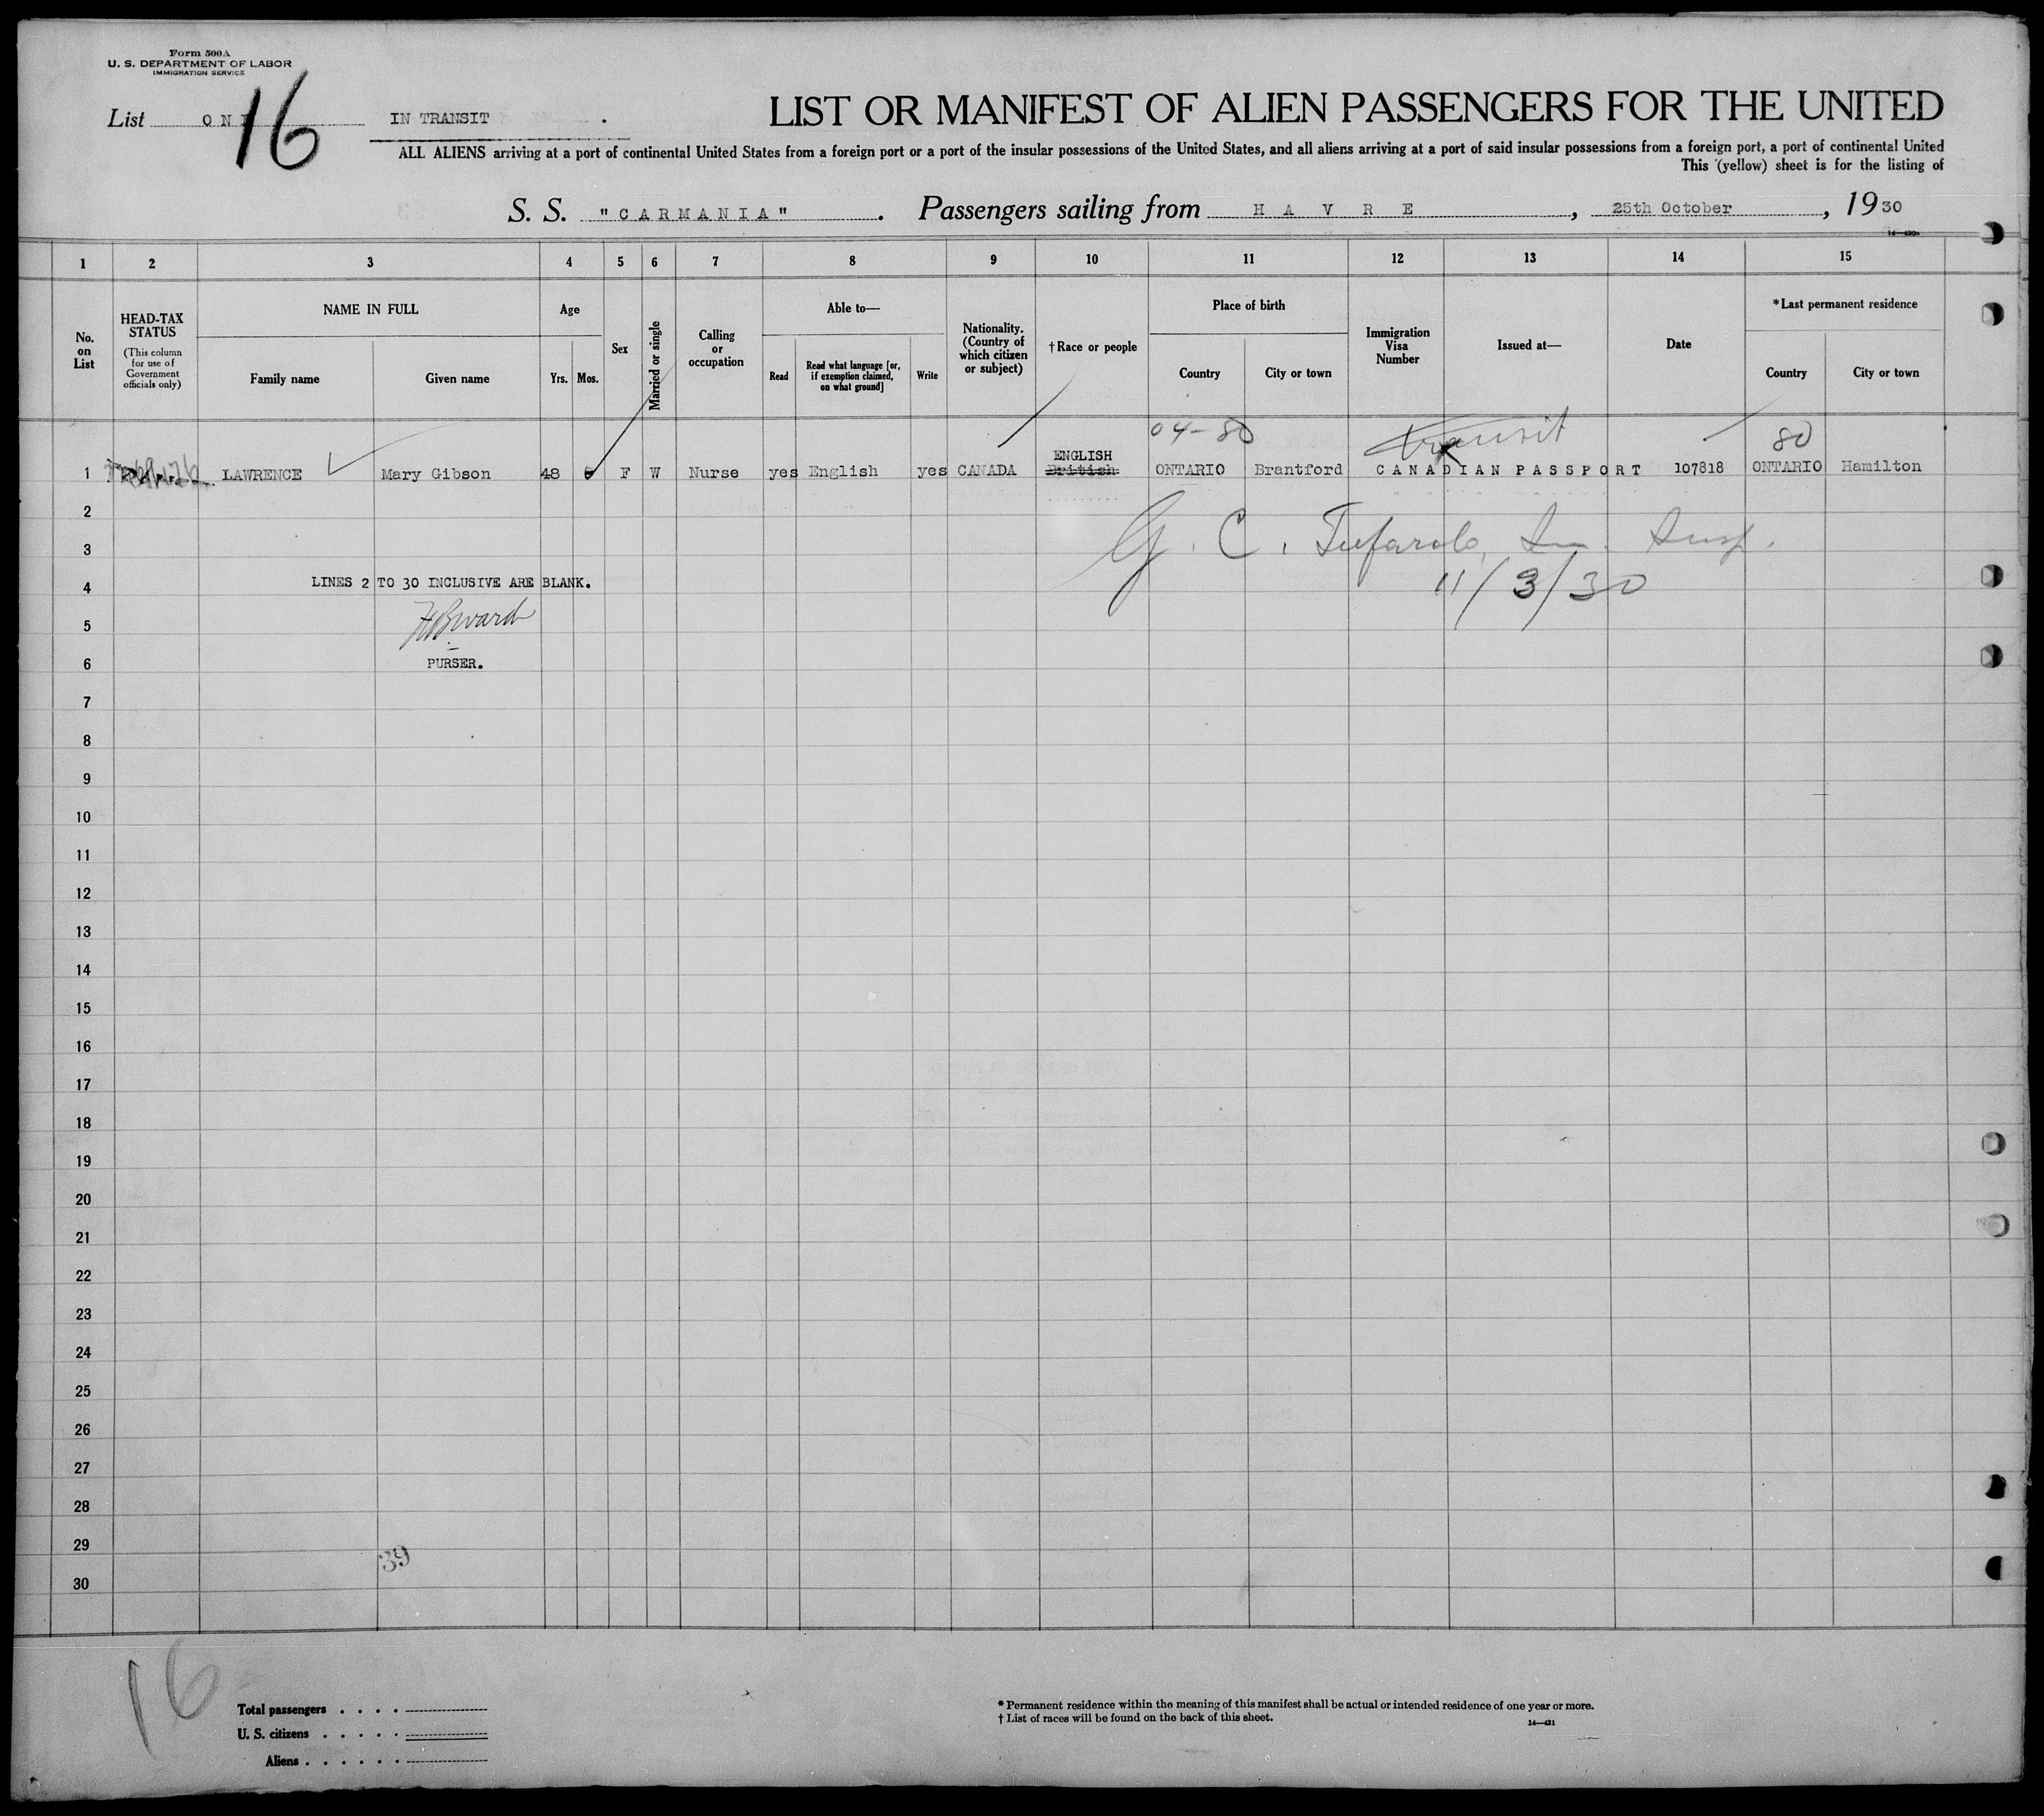 Form 500A
U. S. DEPARTMENT OF LABOR
IMMIGRATION SERVICE
List 16 IN TRANSIT
LIST OR MANIFEST OF ALIEN PASSENGERS FOR THE UNITED
ALL ALIENS arriving at a port of continental United States from a foreign port or a port of the insular possessions of the United States, and all aliens arriving at a port of said insular possessions from a foreign port, a port of continental United
This (yellow) sheet is for the listing of
S. S. "CARMANIA". Passengers sailing from HAVRE, 25th October, 1930
14—430a
1 2 3 4 5 6 7 8 9 10 11 12 13 14 15
No. on List
HEAD-TAX STATUS
(This column for use of Government officials only)
NAME IN FULL
Family name Given name
Age
Yrs. Mos.
Sex
Married or single
Calling or occupation
Able to—
Read
Read what language [or, if exemption claimed, on what ground]
Write
Nationality. (Country of which citizen or subject)
†Race or people
Place of birth
Country City or town
Immigration Visa Number
Issued at—
Date
*Last permanent residence
Country City or town
04-80 transit 80
ENGLISH
1 LAWRENCE Mary Gibson 48 F W Nurse yes English yes CANADA British ONTARIO Brantford CANADIAN PASSPORT 107818 ONTARIO Hamilton
2
G. C. Im. Insp.
3
LINES 2 TO 30 INCLUSIVE ARE BLANK.
4
11/3/30
5
6 PURSER.
7
8
9
10
11
12
13
14
15
16
17
18
19
20
21
22
23
24
25
26
27
28
29
39
30
16
Total passengers
U. S. citizens
Aliens
* Permanent residence within the meaning of this manifest shall be actual or intended residence of one year or more.
† List of races will be found on the back of this sheet.
14—431